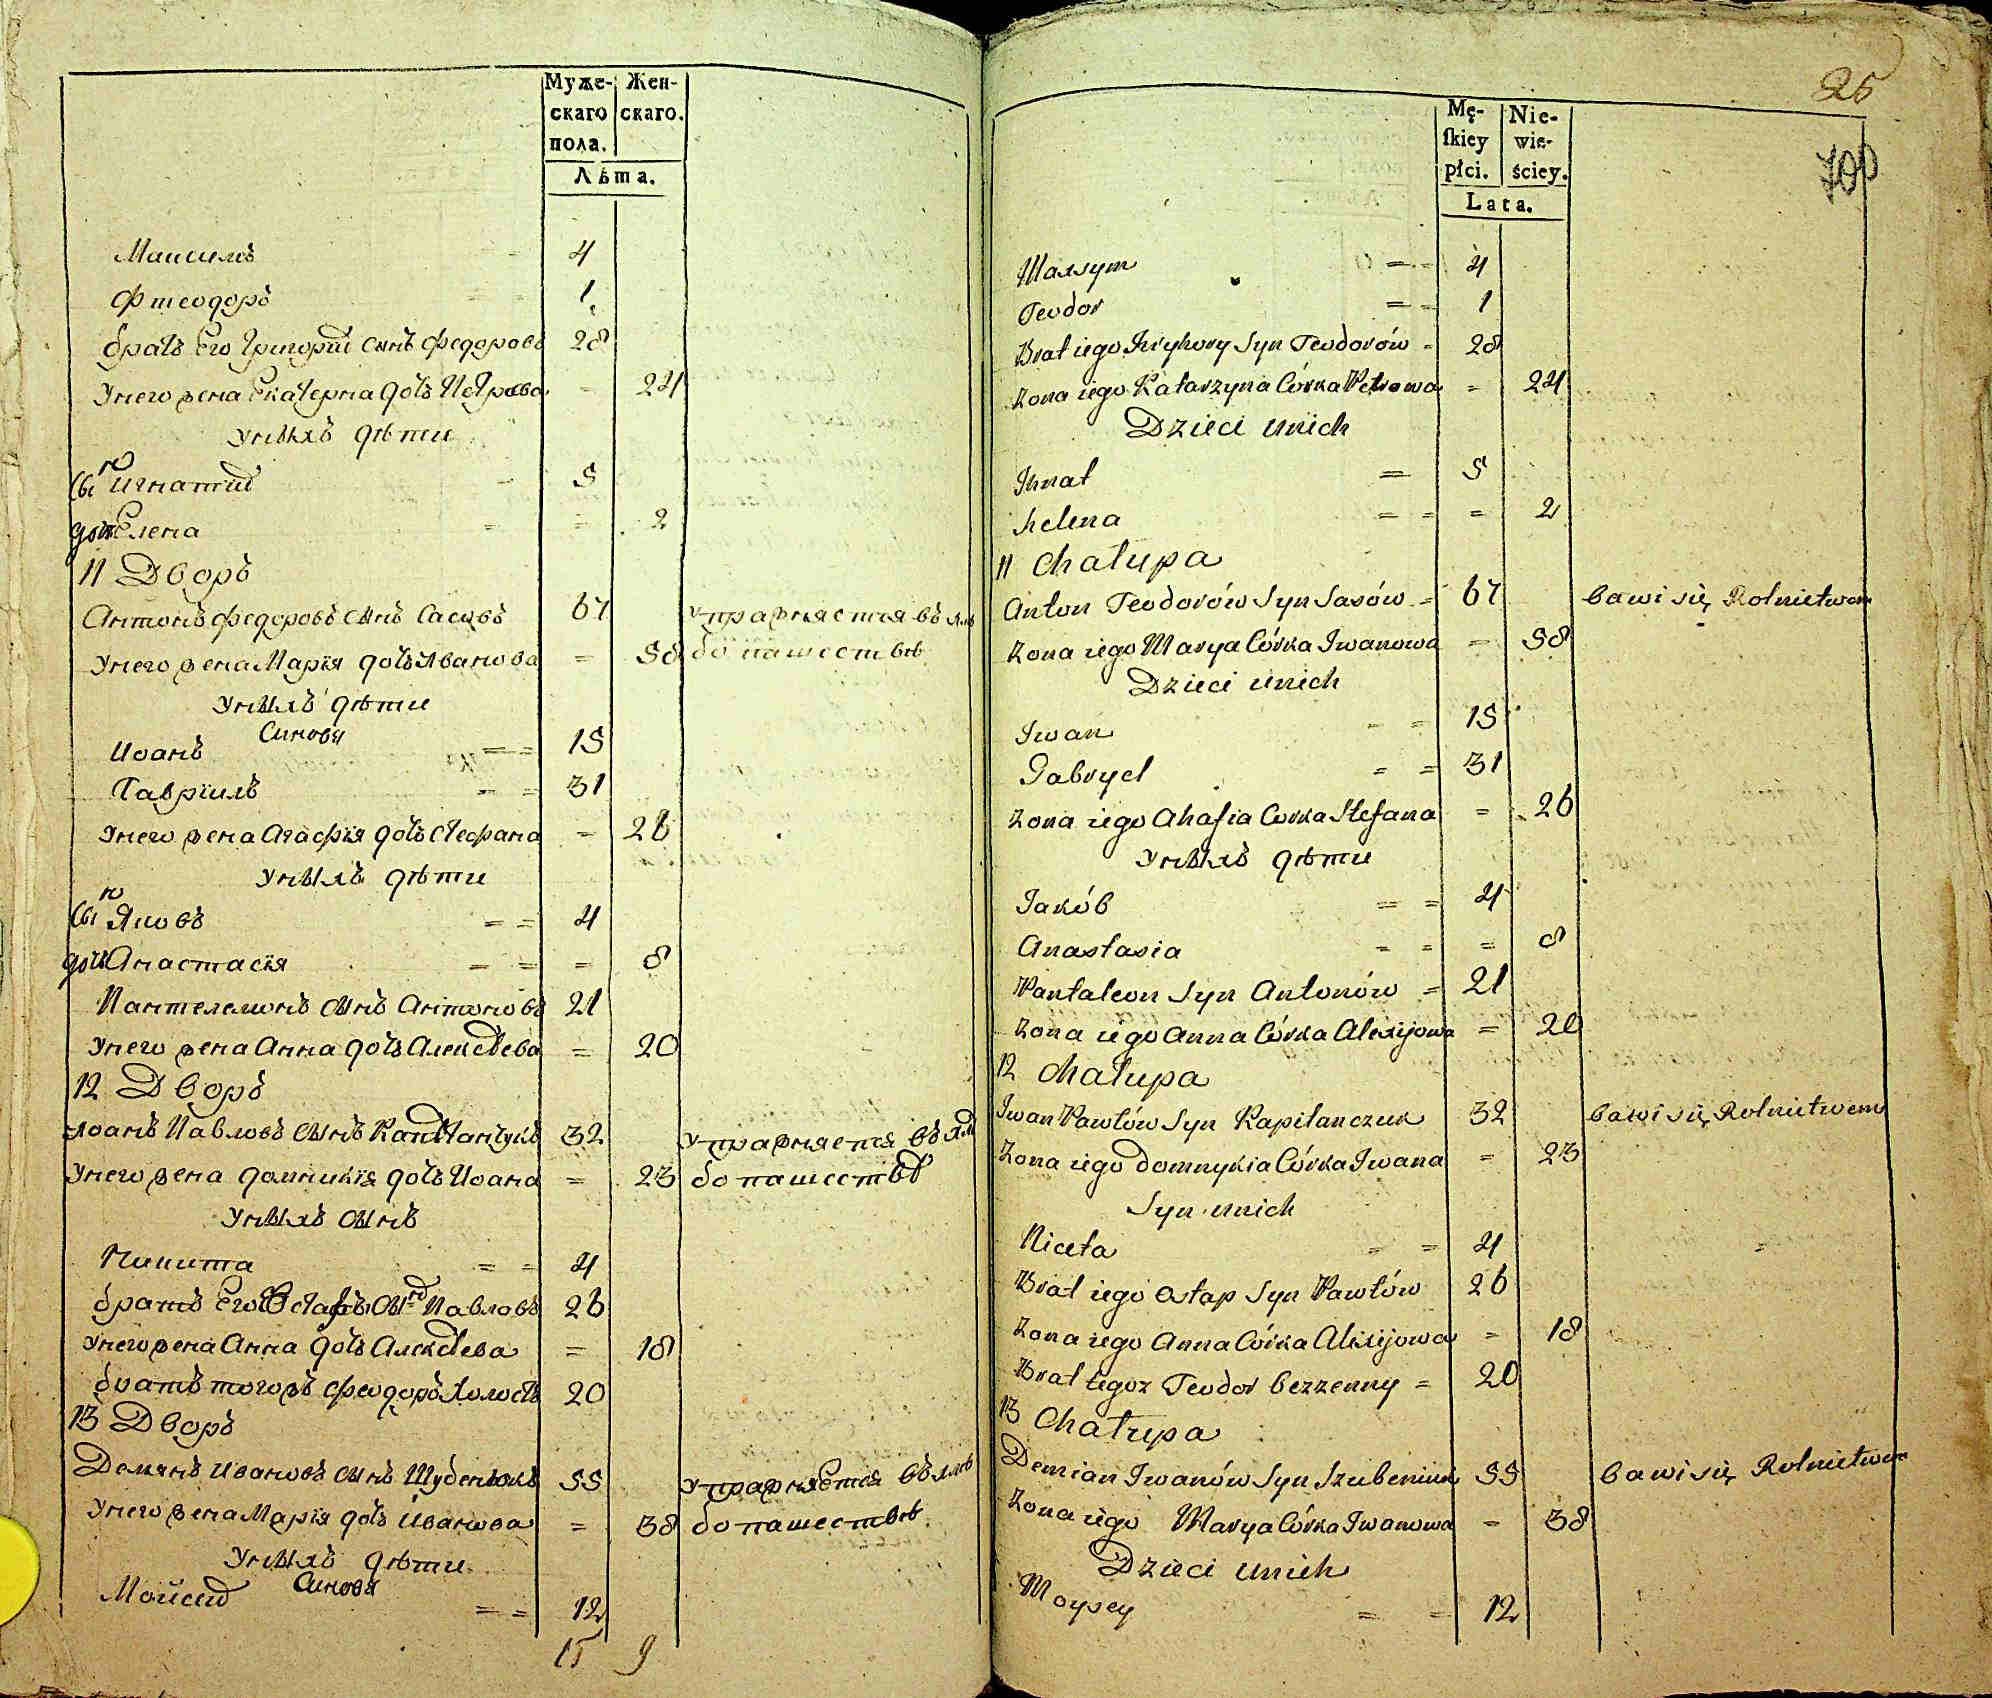 Муже- Жен-
скаго скаго.
пола.
Лѣта.
Максимъ = 4
Фтеодоръ = = 1
братъ Его Григорій сынъ Федоровъ 28
Унего жена Екатерна дочь Петрова = 24
Унихъ дѣти
сынъ Игнатий = 5
дочь Елена = = 2
11 Дворъ
Антонъ Федоровъ сынъ Сасовъ 67 упражняется въ хлѣ
Унего жена Марія дочь Иванова = 58 бопашествѣ
Унихъ дѣти
Синовя
Иоанъ = = 15
Гавріилъ = = 31
Унего жена Агафія дочь Стефана = 26
Унихъ дѣти
сынъ Яковъ = = 4
дочь Анастасія = = = 8
Пантелемонъ сынъ Антоновъ 21
Унего жена Анна дочь Алексѣева = 20
12 Дворъ
Иоанъ Павловъ сынъ 32 упражняется въ хлѣ
Унего жена Домникія дочь Иоана = 23 бопашествѣ
Унихъ сынъ
Никита = = 4
братъ Его Остафъ сынъ Павловъ 26
Унего жена Анна дочь Алексѣева = 18
братъ тогожъ Феодоръ Холостъ 20
13 Дворъ
Демянъ Ивановъ сынъ Шубенюкъ 55 упражняется въ хлѣ
Унего жена Марія дочь Иванова = 38 бопашествѣ
Унихъ дѣти
Синовя
Мойсей = = 12
15 9
25
700
Mę- Nie-
skiey wie-
płci. ściey.
Lata.
Maxym = = 4
Teodor = = 1
Brat iego Hryhory Syn Teodorów = 28
Zona iego Katarzyna Córka Petrowa = 24
Dzieci unich
Ihnat = 5
helena = = = 2
11 Chałupa
Anton Teodorów Syn Sasów = 67 bawi się Rolnictwem
Zona iego Marya Córka Iwanowa = 58
Dzieci unich
Iwan = = 15
Gabryel = = 31
Zona iego Ahafia Corka Stefana = 26
Унихъ дѣти
Iakób = = 4
Anastasia = = = 8
Pantaleon Syn Antonów = 21
Zona iego Anna Córka Alexijowa = 20
12 Chałupa
Iwan Pawłów Syn Kapitanczuk 32 bawi się Rolnictwem
Zona iego Domnykia Córka Iwana = 23
Syn unich
Niceta = = 4
Brat iego Ostap Syn Pawłów 26
Zona iego Anna Córka Alexijowa = 18
Brat tegoz Teodor bezzenny = 20
13 Chałupa
Demian Iwanów Syn Szubeniuk 55 bawi się Rolnictwem
Zona iego Marya Córka Iwanowa = 38
Dzieci unich
Moysey = = 12